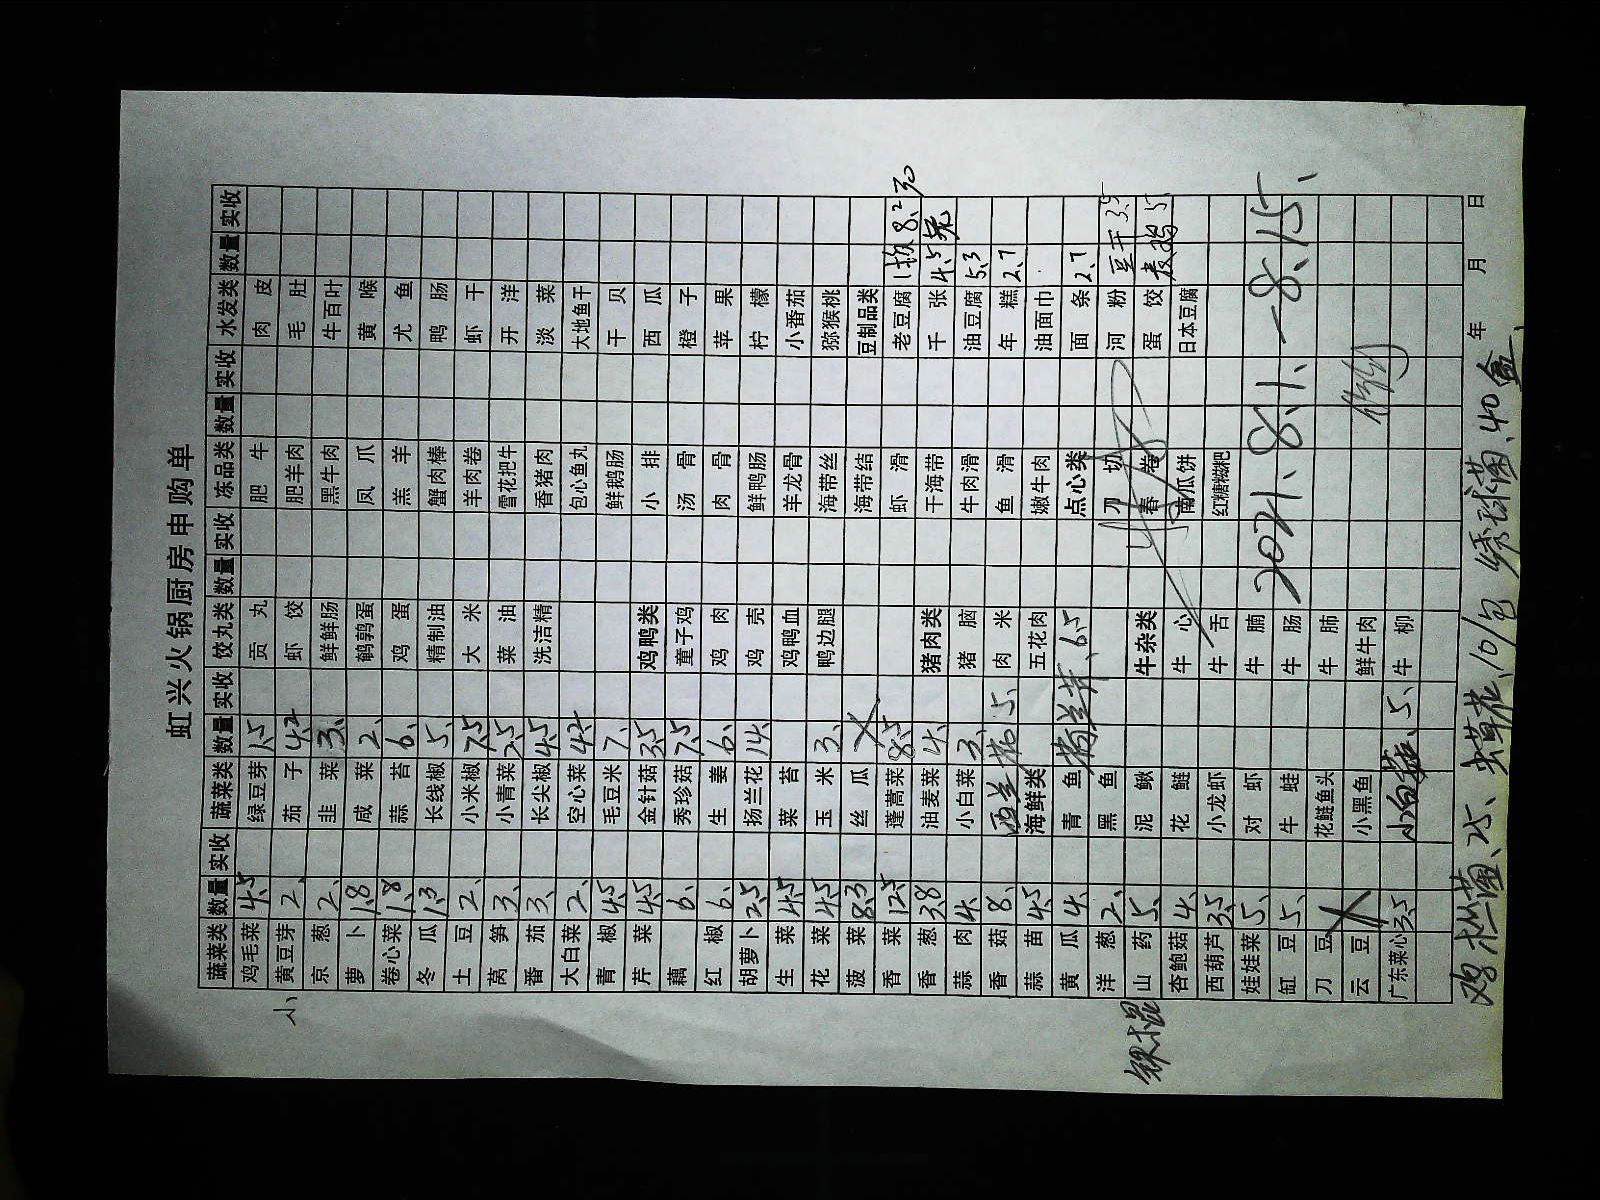 虹兴火锅厨房申购单
蔬菜类 数量 实收 蔬菜类 数量 实收 饺丸类 数量 实收 冻品类 数量 实收 水发类 数量 实收
鸡毛菜 4.5 绿豆芽 1.5 贡丸 肥牛 肉皮
小 黄豆芽 2、 茄子 4.2 虾饺 肥羊肉 毛肚
京葱 2、 韭菜 3、 鲜鲜肠 黑牛肉 牛百叶
萝卜 1.8 咸菜 2、 鹌鹑蛋 凤爪 黄喉
卷心菜 1.8 蒜苔 6、 鸡蛋 羔羊 尤鱼
冬瓜 1.3 长线椒 5、 精制油 蟹肉棒 鸭肠
土豆 2、 小米椒 7.5 大米 羊肉卷 虾干
莴笋 3、 小青菜 2.5 菜油 雪花把牛 开洋
番茄 3、 长尖椒 4.5 洗洁精 香猪肉 淡菜
大白菜 2、 空心菜 4.2 包心鱼丸 大地鱼干
青椒 4.5 毛豆米 7、 鲜鹅肠 干贝
芹菜 4.5 金针菇 3.5 鸡鸭类 小排 西瓜
藕 6、 秀珍菇 7.5 童子鸡 汤骨 橙子
红椒 6、 生姜 6、 鸡肉 肉骨 苹果
胡萝卜 2.5 扬兰花 14、 鸡壳 鲜鸭肠 柠檬
生菜 4.5 菜苔 鸡鸭血 羊龙骨 小番茄
花菜 4.5 玉米 3、 鸭边腿 海带丝 猕猴桃
菠菜 8.3 丝瓜 海带结 豆制品类
香菜 12.5 蓬蒿菜 8.5 虾滑 老豆腐 8.2 30
香葱 3.8 油麦菜 4、 猪肉类 干海带 千张 4.5
蒜肉 4、 小白菜 3、 猪脑 牛肉滑 油豆腐 5.3
香菇 8、 5、 肉米 鱼滑 年糕 2.7
蒜苗 4.5 海鲜类 五花肉 嫩牛肉 油面巾
黄瓜 4、 青鱼 6.5 点心类 面条 2.7
洋葱 2、 黑鱼 刀切 河粉 豆干 3.5
铁棍 山药 5、 泥鳅 牛杂类 春卷 蛋饺 5、
杏鲍菇 4、 花鲢 牛心 南瓜饼 日本豆腐
西葫芦 3.5 小龙虾 牛舌 红糖糍粑
娃娃菜 5、 对虾 牛腩 2021.8.1.—8.15、
缸豆 5、 牛蛙 牛肠
刀豆 花鲢鱼头 牛肺
云豆 小黑鱼 鲜牛肉
广东菜心 3.5 小白菇 5、 牛柳
年 月 日
鸡枞菌、25、虫草花、10/包 绣球菌、40盒、